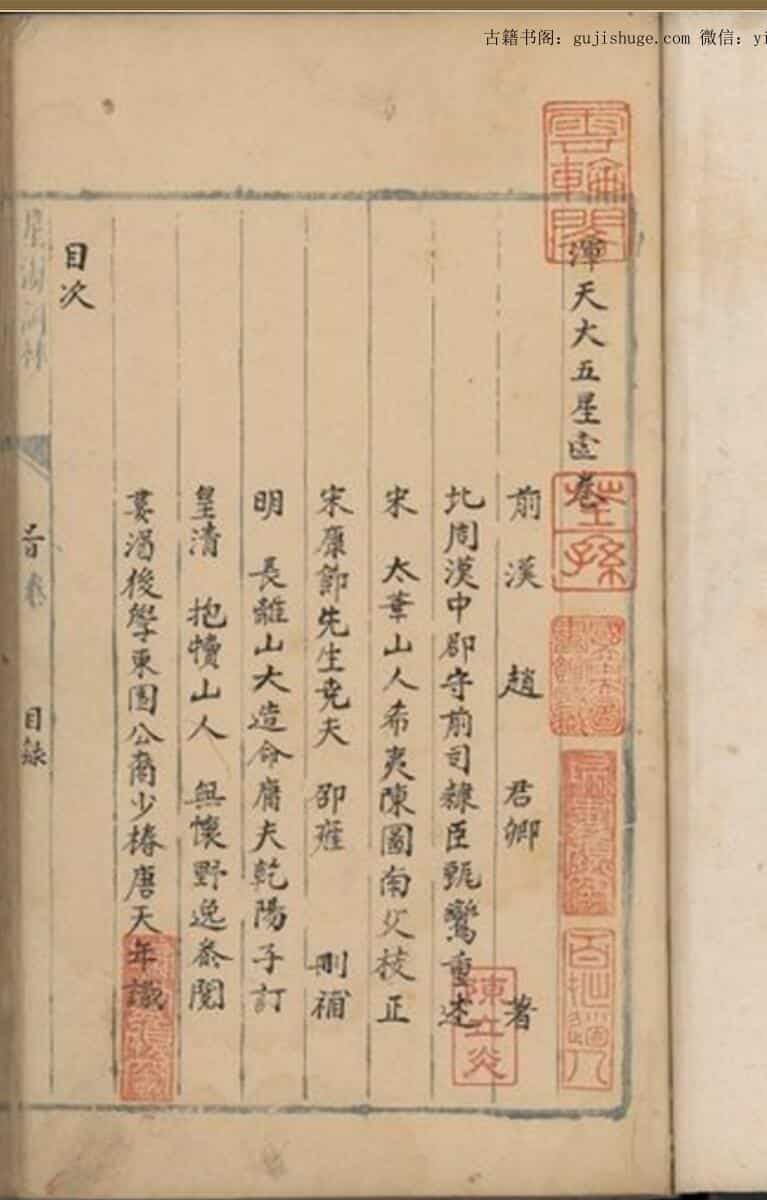 古籍书阁：gujishuge.com 微信：yi
渾天大五星 卷
前漢 趙君卿 著
北周漢中郡守前司隸臣甄鸞重述
宋 太華山人希夷陳圖南父校正
宋康節先生堯夫 邵雍 刪補
明 長離山大造命庸夫乾陽子訂
皇清 抱犢山人 無懷野逸叅閱
婁 後學東園公裔少椿唐天年識
目次
首卷
目錄
雲輪閣
荃孫
陳立炎